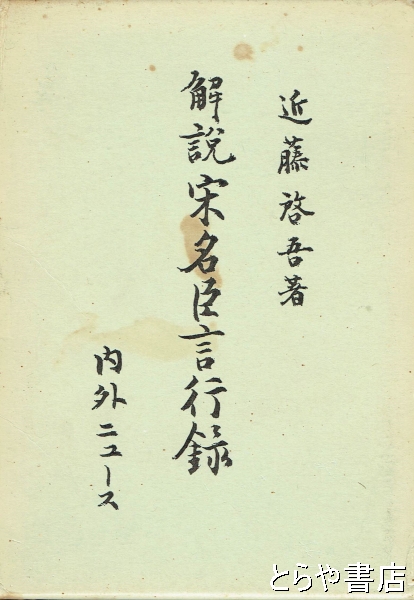 近藤啓吾著
解説宋名臣言行録
内外ニュース
とらや書店